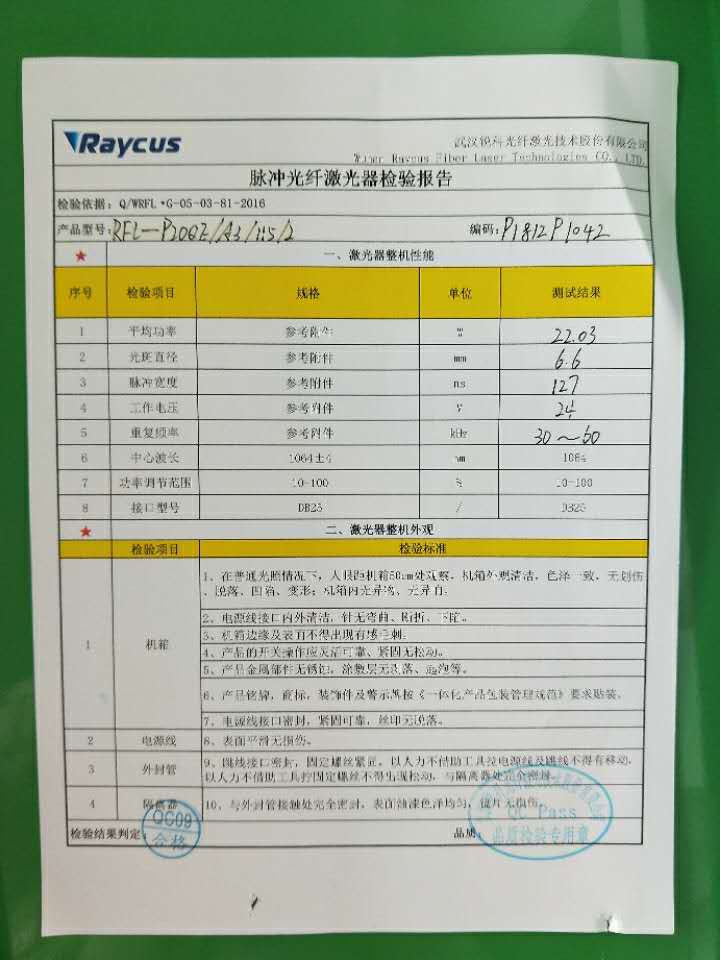 Raycus
武汉锐科光纤激光技术股份有限公司
Raycus Fiber Laser Technologies CO., LTD.
脉冲光纤激光器检验报告
检验依据：Q/WRFL •G-05-03-81-2016
产品型号: RFL-P20QE/A3/ 编码: P1812P1042
★ 一、激光器整机性能
序号 检验项目 规格 单位 测试结果
1 平均功率 参考附件 22.03
2 光斑直径 参考附件 mm 6.6
3 脉冲宽度 参考附件 ns 127
4 工作电压 参考附件 V 24
5 重复频率 参考附件 kHz 30～60
6 中心波长 1064±4 nm 1064
7 功率调节范围 10-100 % 10-100
8 接口型号 DB25 / DB25
★ 二、激光器整机外观
检验项目 检验标准
1 机箱
1、在普通光照情况下，人眼距机箱50cm处观察，机箱外观清洁，色泽一致，无划伤
、脱落、凹陷、变形；机箱内无异物、无异响。
2、电源线接口内外清洁，针无弯曲、断折、下陷。
3、机箱边缘及表面不得出现有感毛刺。
4、产品的开关操作应灵活可靠、紧固无松动。
5、产品金属部件无锈蚀，涂敷层无剥落、起泡等。
6、产品铭牌，商标，装饰件及警示牌按《一体化产品包装管理规范》要求贴装。
7、电源线接口密封，紧固可靠，丝印无脱落。
2 电源线 8、表面平滑无损伤。
3 外封管 9、跳线接口密封，固定螺丝紧固，以人力不借助工具拉电源线及跳线不得有移动，
以人力不借助工具拧固定螺丝不得出现松动，与隔离器处完全密封。
4 隔离器 10、与外封管接触处完全密封，表面油漆色泽均匀，镜片无损伤。
检验结果判定： 品质：
QC09
合格
QC Pass
品质检验专用章